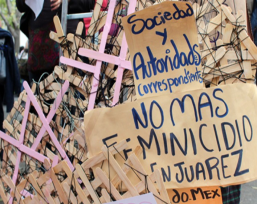 Sociedad
y
Autoridads
correspondiente
NO MAS
F-MINICIDIO
N JUAREZ
DO. MEX